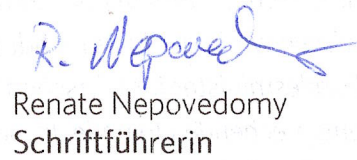 R. Nepovedomy
Renate Nepovedomy
Schriftführerin